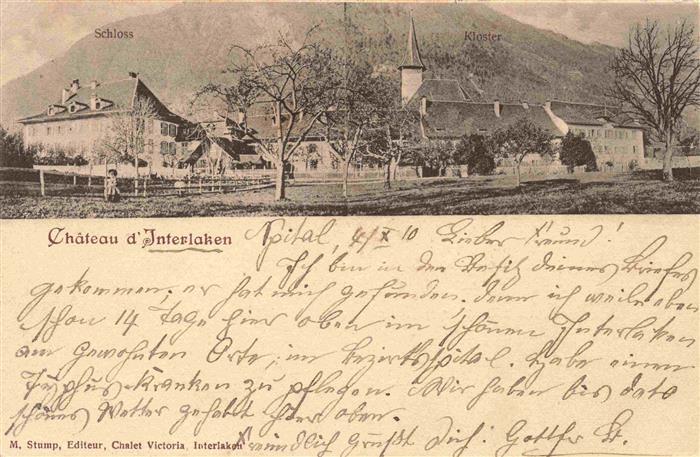 Schloss
Kloster
Château d'Interlaken
Spital, 4/X 10 Lieber Freund!
Ich bin in den Besitz deines Briefes
gekommen, er hat mich gefunden, denn ich weile oben
schon 14 Tage hier oben im schönen Interlaken
am gewohnten Orte, im Bezirksspital. Habe einen
Typhus-Kranken zu pflegen. Wir haben bis dato
schönes Wetter gehabt hier oben.
M. Stump, Editeur, Chalet Victoria Interlaken
Freundlich grüsst Dich: Gottfr